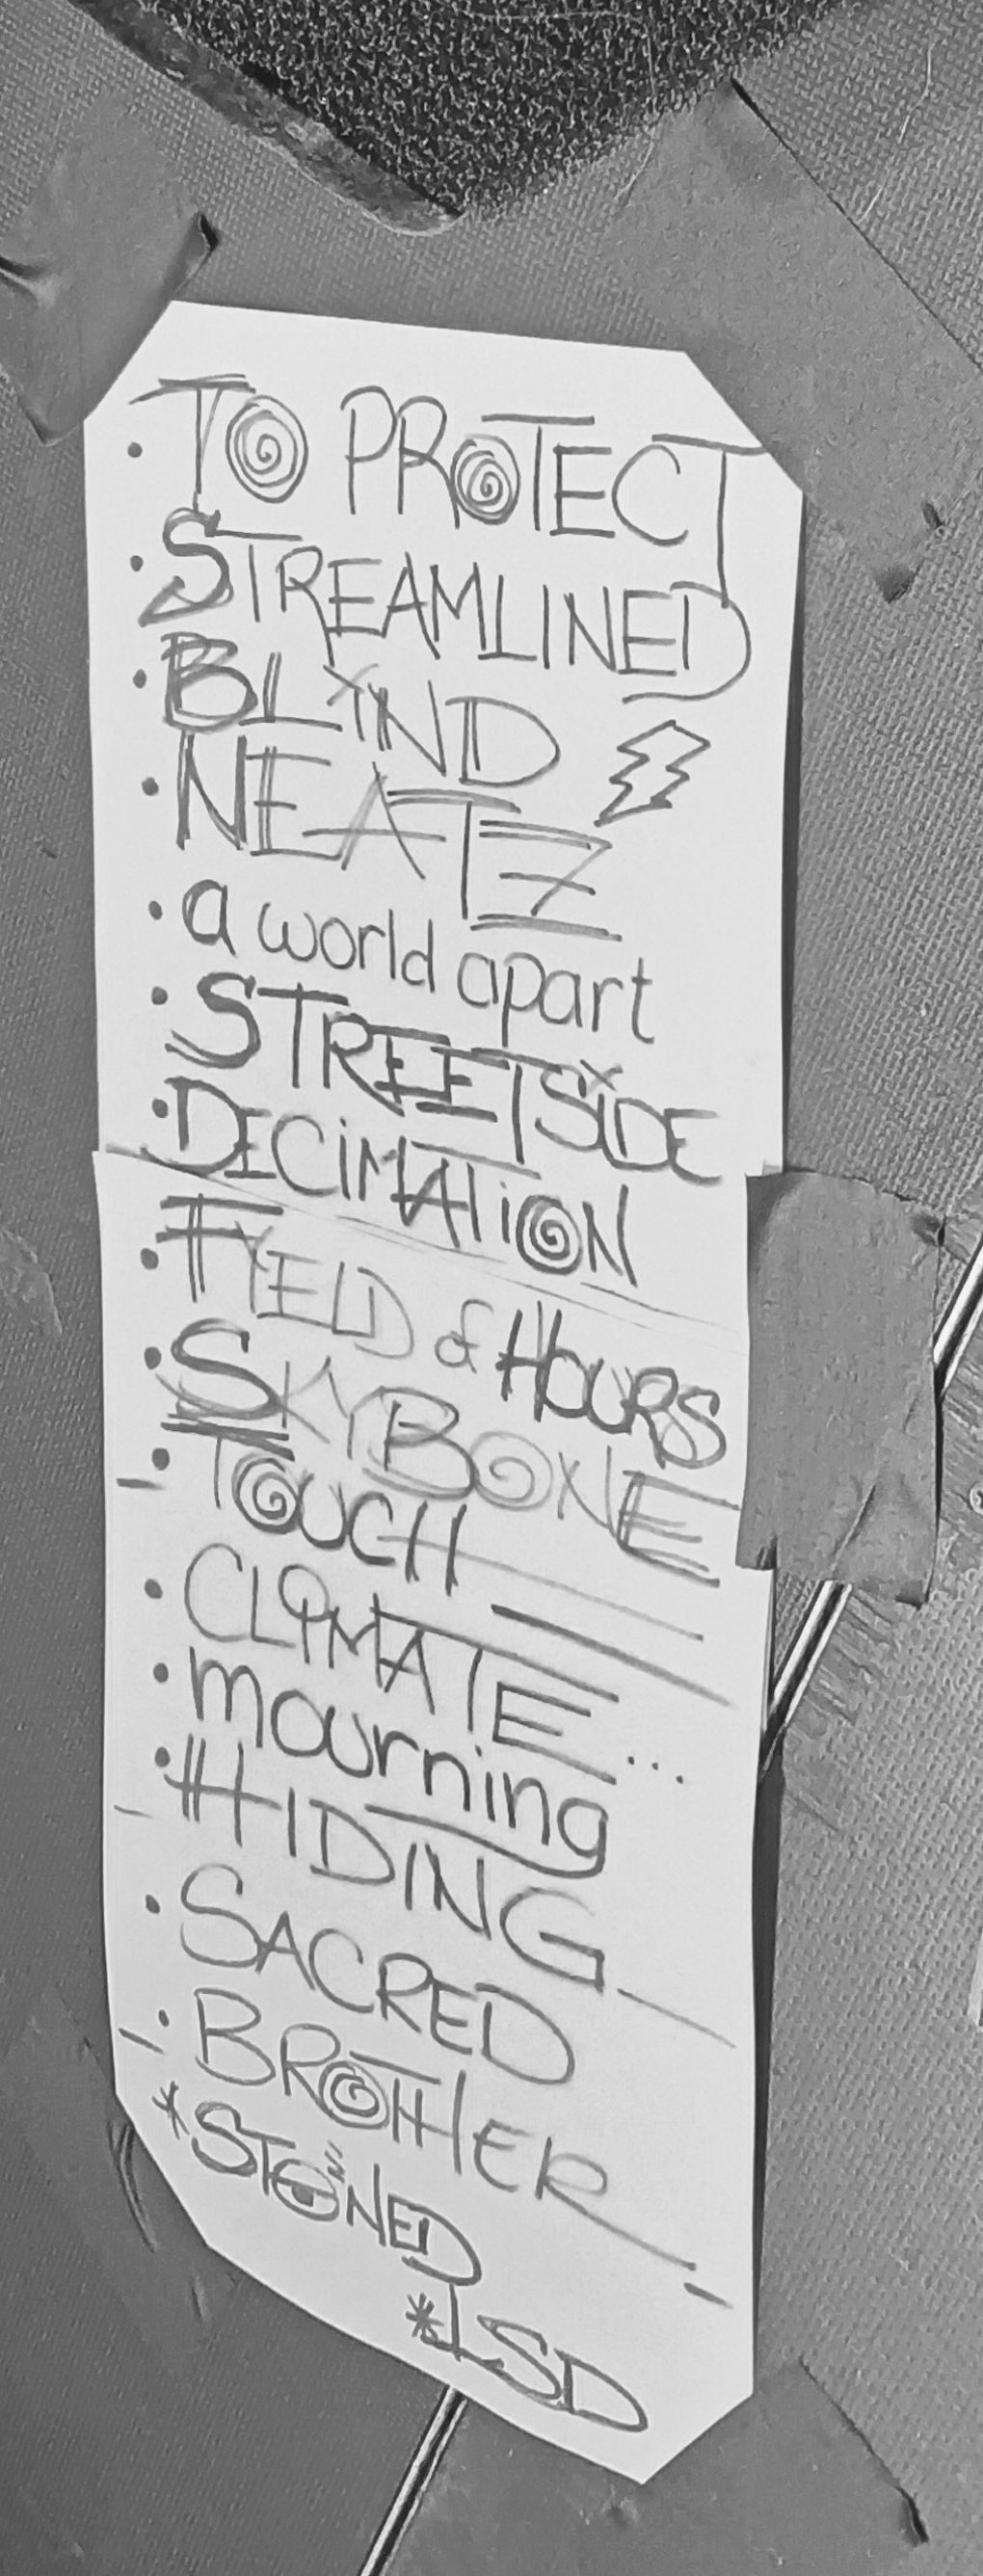 • TO PROTECT
• STREAMLINED
• BLIND
• NEATZ
• a world apart
• STREETSIDE
• DECIMATION
• FYELD & HOURS
• SKYBONE
• TOUCH
• CLIMATE...
• mourning
• HIDING
• SACRED
• BROTHER
*STONED
*LSD